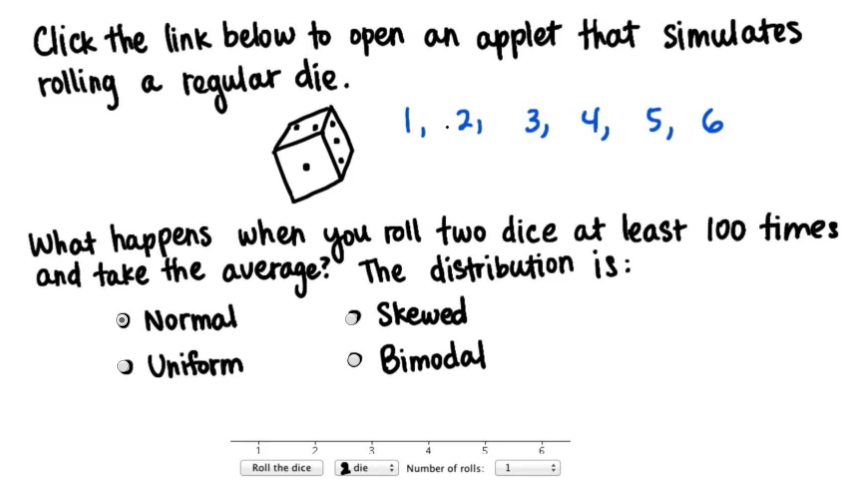 Click the link below to open an applet that simulates
rolling a regular die.
1, 2, 3, 4, 5, 6
What happens when you roll two dice at least 100 times
and take the average? The distribution is:
Normal Skewed
Uniform Bimodal
1 2 3 4 5 6
Roll the dice 2 die Number of rolls: 1